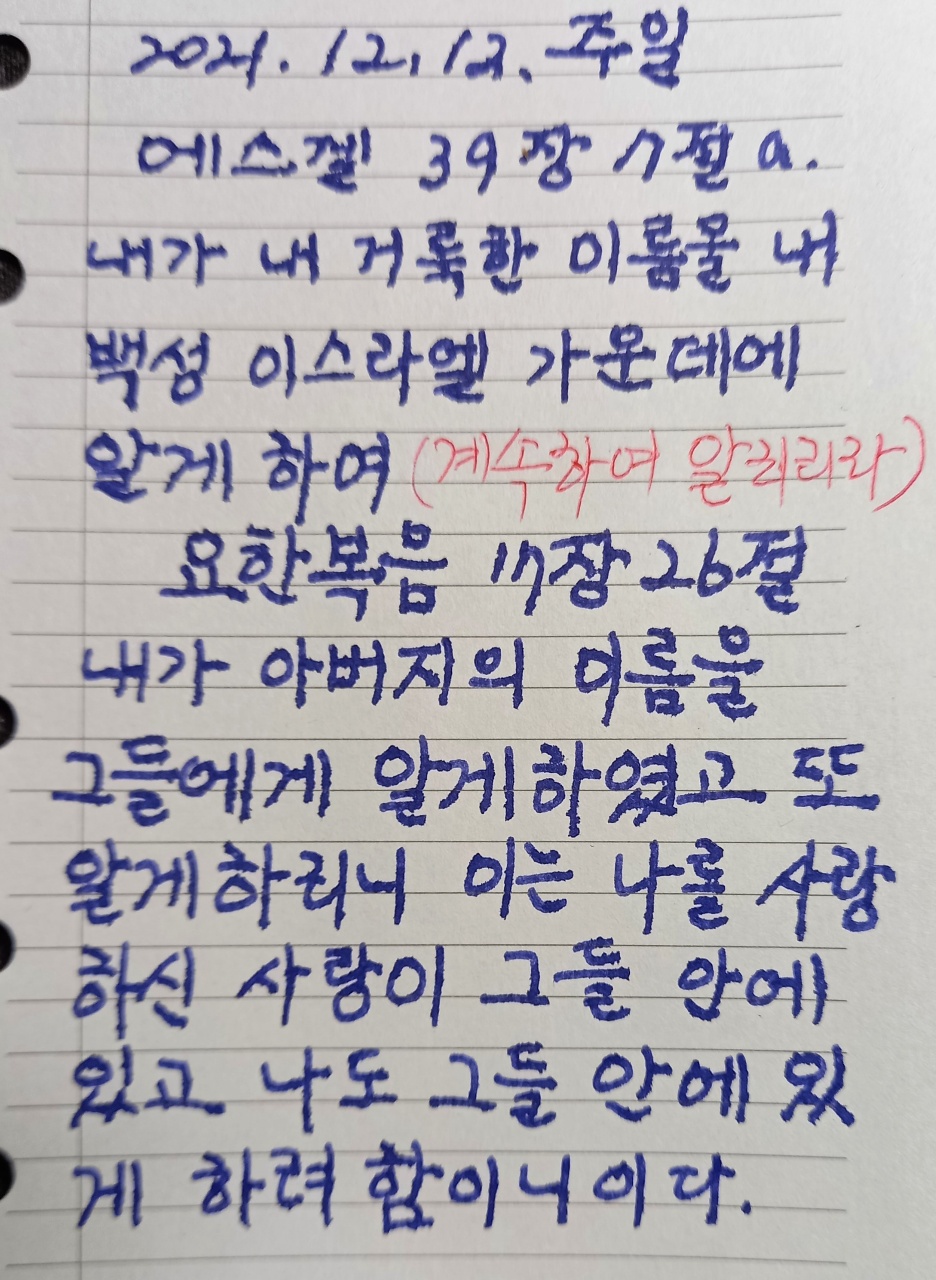 2021. 12, 12. 주일
에스겔 39장 7절 a.
내가 내 거룩한 이름물 내
백성 이스라엘 가운데에
알게 하여 (계속하여 알리리라)
요한복음 17장 26절
내가 아버지의 이름을
그들에게 알게하였고 또
알게하리니 이는 나를 사랑
하신 사랑이 그들 안에
있고 나도 그들 안에 있
게 하려 함이니이다.